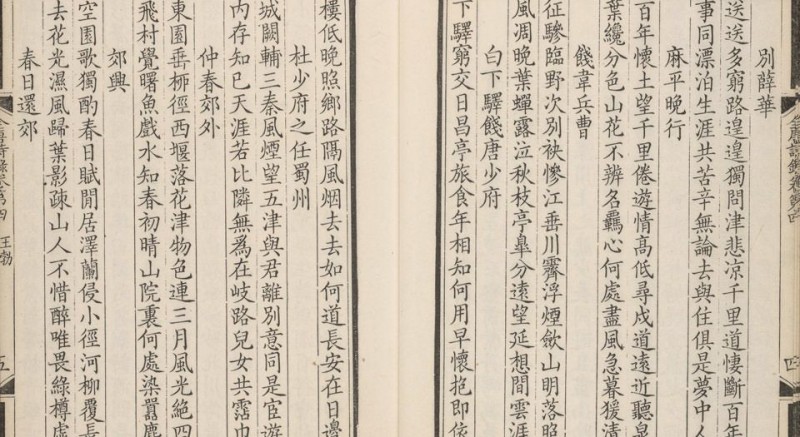 別薛華
送送多窮路遑遑獨問津悲凉千里道悽斷百年
事同漂泊生涯共苦辛無論去與住俱是夢中人
麻平晚行
百年懷土望千里倦遊情高低尋戍道遠近聽泉
葉纔分色山花不辨名羈心何處盡風急暮猨清
餞韋兵曹
征驂臨野次別袂慘江垂川霽浮煙歛山明落照
風凋晚葉蟬露泣秋枝亭皐分遠望延想間雲涯
白下驛餞唐少府
下驛窮交日昌亭旅食年相知何用早懷抱即依
樓低晚照鄉路隔風烟去去如何道長安在日邊
杜少府之任蜀州
城闕輔三秦風煙望五津與君離別意同是宦遊
内存知已天涯若比隣無爲在岐路兒女共霑巾
仲春郊外
東園垂柳徑西堰落花津物色連三月風光絕四
飛村覺曙魚戲水知春初晴山院裏何處染囂塵
郊興
空園歌獨酌春日賦閒居澤蘭侵小徑河柳覆長
去花光濕風歸葉影疎山人不惜醉唯畏綠樽虛
春日還郊
卷第四 王勃 五